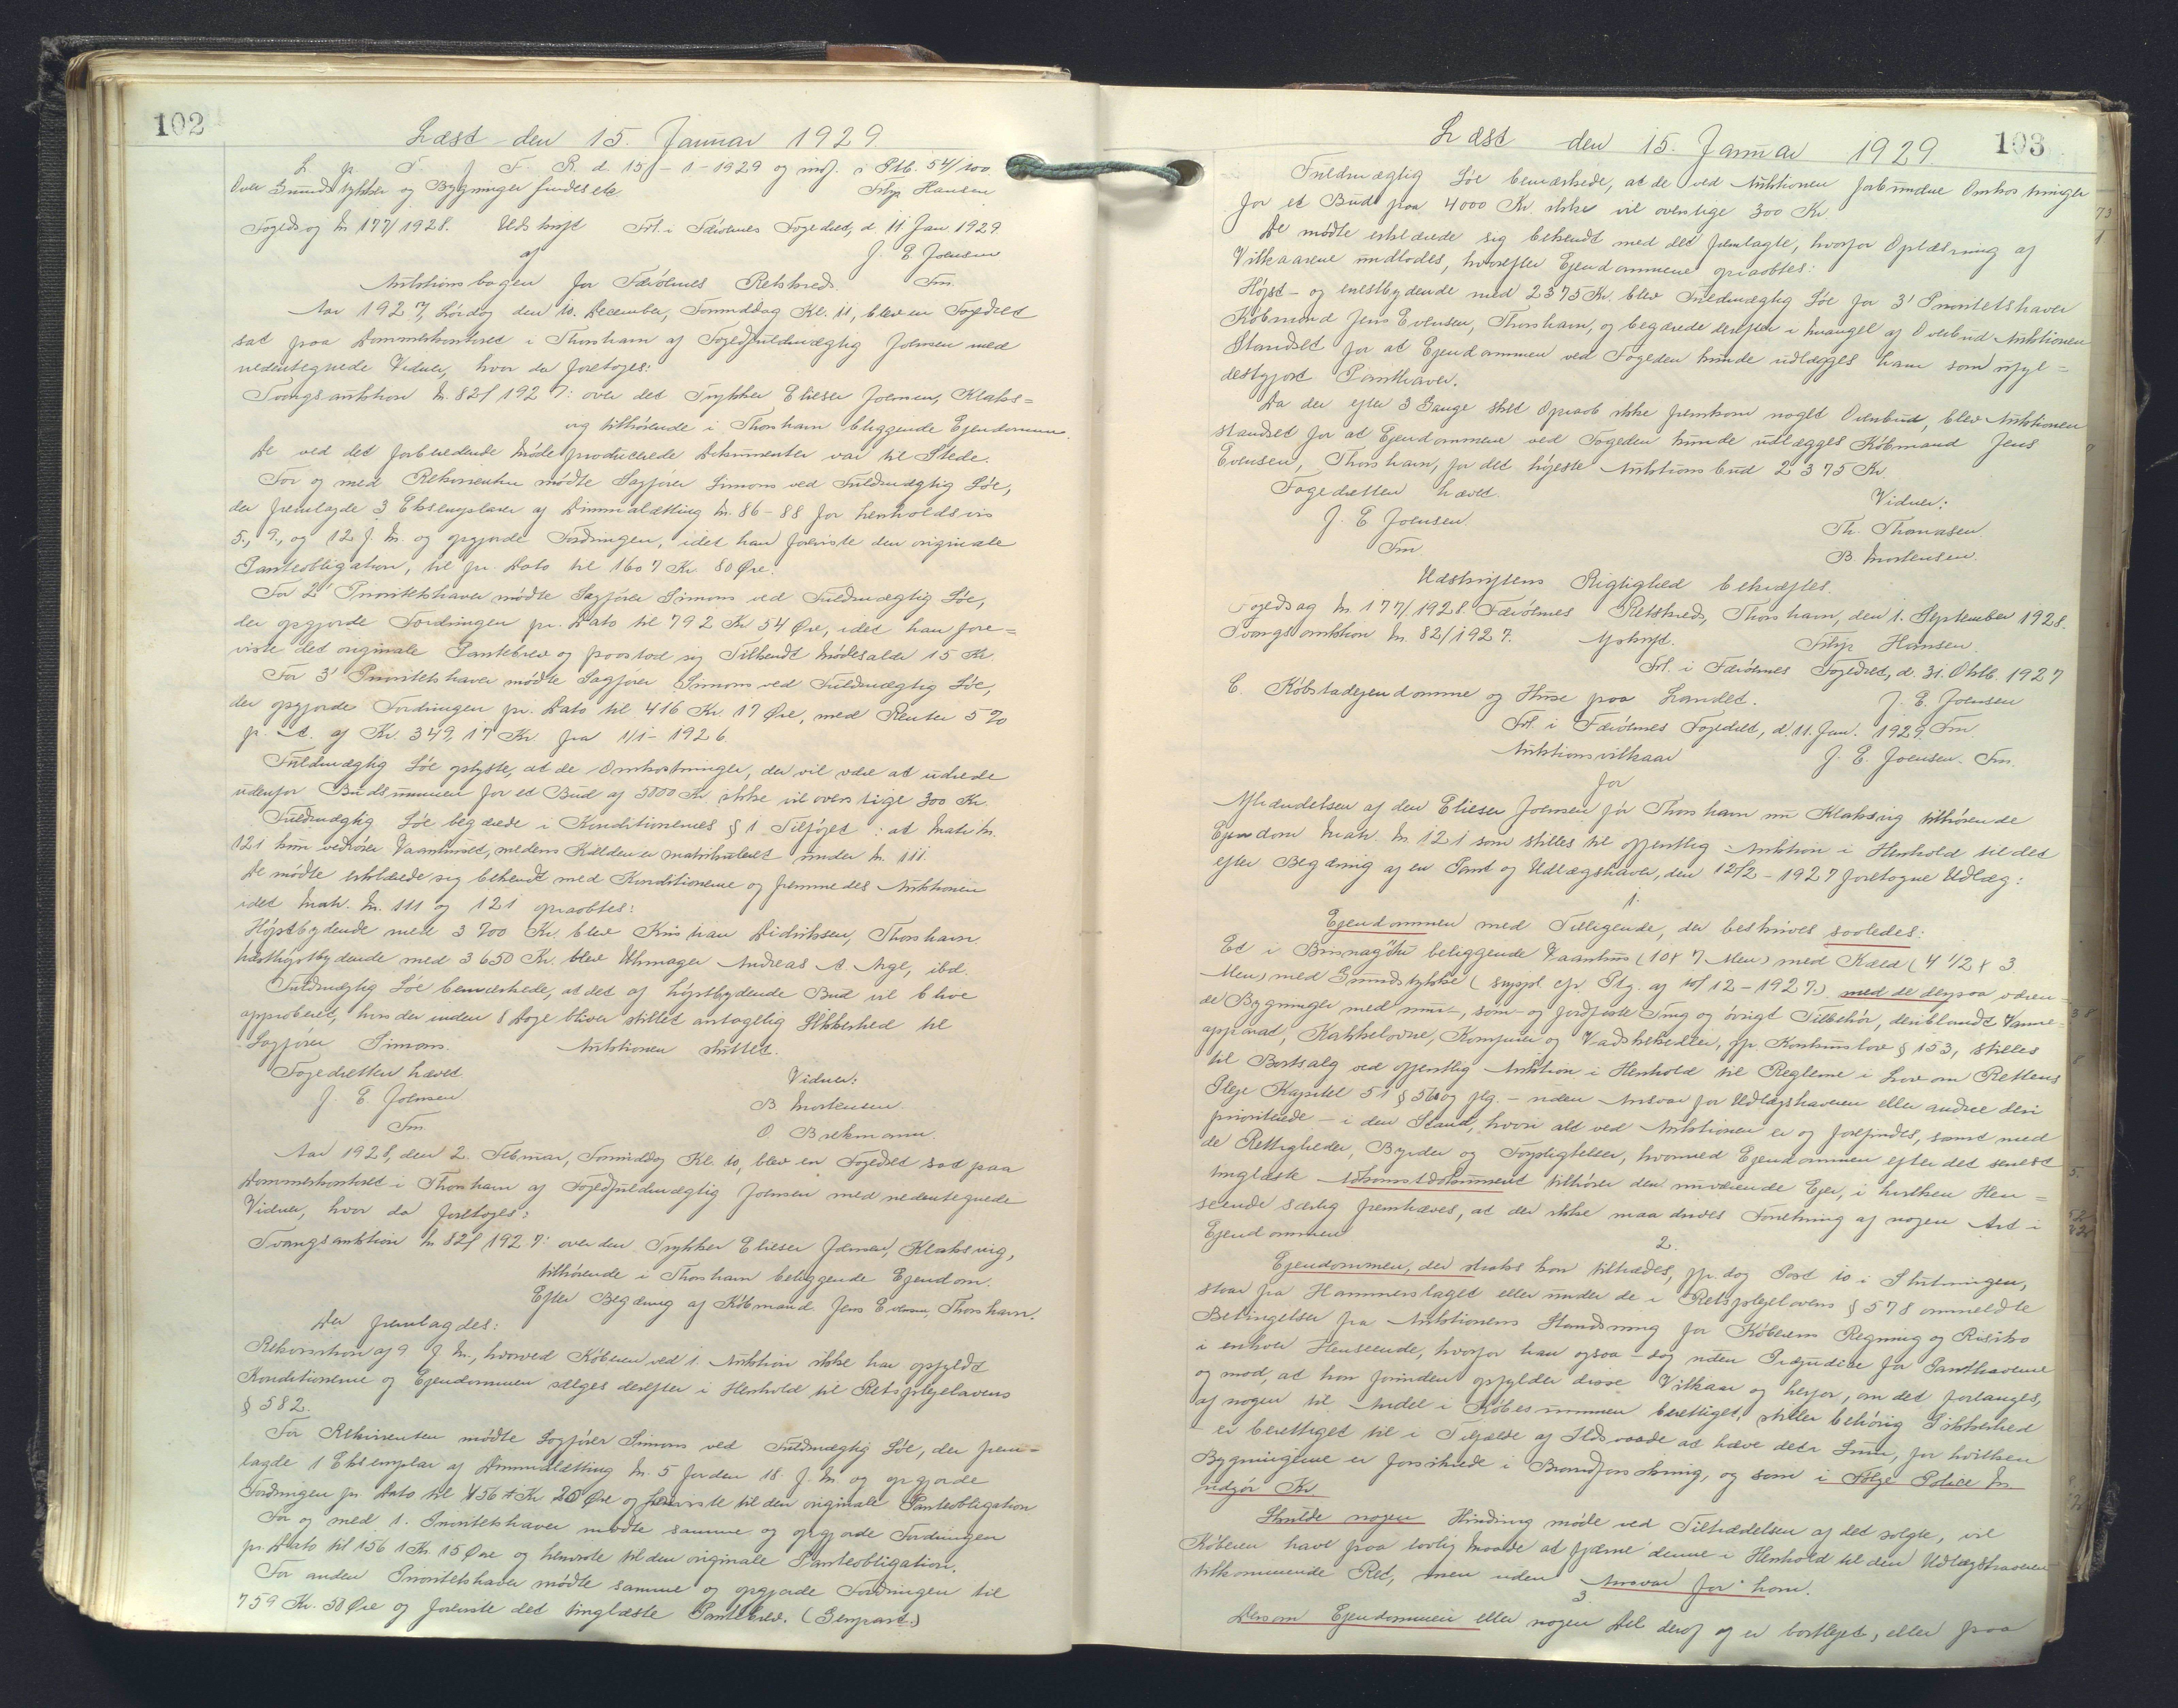 102
Læst den 15. Januar 1929.
L. p. T. f. F. R. d. 15/-1-1929 og indf. i Ptb. 54/100
Over Grundstykker og Bygninger findes etc. Filip Hansen
Fogedsag No 177/1928. Udskrift Frl. i Færöernes Fogedret, d. 11 Jan 1929
af J. E. Joensen
Auktionsbogen for Færöernes Retskreds. Fm.
Aar 1927, Lördag den 10. December, Formiddag Kl. 11, blev en Fogedret
sat paa Dommerkontoret i Thorshavn af Fogedfuldmægtig Joensen med
nedentegnede Vidner, hvor da foretoges:
Tvangsauktion No. 82/1927: over det Trykker Elieser Joensen, Klaks=
vig tilhörende i Thorshavn beliggende Ejendomme.
De ved det forberedende Möde producerede Dokumenter var til Stede.
For og med Rekvirenten mödte Sagförer Simons ved Fuldmægtig Löe,
der fremlagde 3 Eksemplarer af Dimmalætting No. 86-88 for henholdsvis
5., 9., og 12 f. M. og opgjorde Fordringen, idet han foreviste den originale
Panteobligation, til pr. Dato til 1607 Kr. 80 Øre.
For 2' Prioritetshaver mödte Sagförer Simons ved Fuldmægtig Löe,
der opgjorde Fordringen pr. Dato til 792 Kr 54 Øre, idet han fore=
viste det originale Pantebrev og paastod sig Tilkendt Mödesalær 15 Kr.
For 3' Prioritetshaver mödte Sagförer Simons ved Fuldmægtig Löe,
der opgjorde Fordringen pr. Dato til 416 Kr. 17 Øre, med Renter 5 %
p. a. af Kr. 349,17 Kr. fra 1/1-1926.
Fuldmægtig Löe oplyste, at de Omkostninger, der vil være at udrede
udenfor Budsummen for et Bud af 5000 Kr. ikke vil overstige 300 Kr.
Fuldmægtig Löe begærede i Konditionernes § 1 Tilföjet: at Matr. No.
121 kun vedrörer Vaanhuset, medens Kælderen er matrikuleret under No. 111.
De mödte erklærede sig bekendt med Konditionerne og fremmedes Auktionen
idet Matr. No. 111 og 121 opraabtes:
Höjstbydende med 3700 Kr. blev Kristian Didriksen, Thorshavn.
Næsthöjstbydende med 3650 Kr. blev Uhrmager Andreas A Arge, ibd.
Fuldmægtig Löe bemærkede, at det af höjstbydende Bud vil blive
approberet, hvis der inden 8 Dage bliver stillet antagelig Sikkerhed til
Sagförer Simons. Auktionen sluttet.
Fogedretten hævet. Vidner:
J. E. Joensen B. Mortensen.
Fm. O. Brekmann.
Aar 1928, den 2. Februar, Formiddag Kl. 10, blev en Fogedret sat paa
Dommerkontoret i Thorshavn af Fogedfuldmægtig Joensen med nedentegnede
Vidner, hvor da foretoges:
Tvangsauktion No 82/1927: over den Trykker Elieser Joensen, Klaksvig,
tilhörende i Thorshavn beliggende Ejendom.
Efter Begæring af Köbmand Jens Evensen, Thorshavn.
Der fremlagdes:
Rekvisition af 9 f. M., hvorved Köberen ved 1. Auktion ikke har opfyldt
Konditionerne og Ejendommen sælges derefter i Henhold til Retsplejelovens
§ 582.
For Rekvirenten mödte Sagförer Simons ved Fuldmægtig Löe, der frem=
lagde 1 Eksemplar af Dimmalætting No. 5 for den 18. f. M. og opgjorde
Fordringen pr. Dato til Kr 20 Øre og henviste til den originale Panteobligation
For og med 1. Prioritetshaver mödte samme og opgjorde Fordringen
pr. Dato til 1561 Kr. 15 Øre og henviste til den originale Panteobligation.
For anden Prioritetshaver mödte samme og opgjorde Fordringen til
759 Kr. 50 Øre og foreviste det tinglæste Pantebrev. (Genpart.)
Læst den 15. Januar 1929. 103
Fuldmægtig Löe bemærkede, at de ved Auktionen forbundne Omkostninger
for et Bud paa 4000 Kr. ikke vil overstige 300 Kr.
De mödte erklærede sig bekendt med det fremlagte, hvorfor Oplæsning af
Vilkaarene undlodes, hvorefter Ejendommene opraabtes:
Höjst- og enestbydende med 2375 Kr. blev Fuldmægtig Löe for 3' Prioritetshaver
Köbmand Jens Evensen, Thorshavn, og begærede derefter i Mangel af Overbud Auktionen
Standset for at Ejendommen ved Fogeden kunde udlægges ham som ufyl=
destgjort Panthaver.
Da der efter 3 Gange sket Opraab ikke fremkom noget Overbud, blev Auktionen
standset for at Ejendommene ved Fogeden kunde udlægges Köbmand Jens
Evensen, Thorshavn, for det höjeste Auktionsbud 2375 Kr
Fogedretten hævet. Vidner:
J. E. Joensen. Th. Thomasen.
Fm. B. Mortensen.
Udskriftens Rigtighed bekræftes.
Fogedsag No 177/1928. Færöernes Retskreds, Thorshavn, den 1. September 1928.
Tvangsauktion No. 82/1927. Afskrift. Filip Hansen.
Frl. i Færöernes Fogedret, d. 31. Oktb. 1927
C. Köbstadejendomme og Huse paa Landet. J. E. Joensen
Frl. i Færöernes Fogedret, d. 11. Jan. 1929. Fm.
Auktionsvilkaar J. E. Joensen. Fm.
for
Afhændelsen af den Elieser Joensen för Thorshavn nu Klaksvig tilhörende
Ejendom Matr. No 121 som stilles til offentlig Auktion i Henhold til det
efter Begæring af en Pant og Udlægshaver, den 12/2-1927 foretagne Udlæg:
1.
Ejendommen med Tilliggende, der beskrives saaledes:
Et i beliggende Vaanhus (10 x 7 Alen) med Kæld (4 1/2 x 3
Alen) med Grundstykke (suppl. cfr. Ptg. af 10/12-1927.) med de derpaa væren=
de Bygninger med mur-, söm- og jordfaste Ting og övrigt Tilbehör, deriblandt Varme=
apparat, Kakkelovne, Komfurer og Vadskekedler, jfr. Konkurslov § 153, stilles
til Bortsalg ved offentlig Auktion i Henhold til Reglerne i Lov om Rettens
Pleje Kapitel 51 § 560 og flg. - uden Ansvar for Udlægshaveren eller andre deri
prioriterede - i den Stand, hvori alt ved Auktionen er og forefindes, samt med
de Rettigheder, Byrder og Forpligtelser, hvormed Ejendommen efter det senest
tinglæste Adkomstdokument tilhörer den nuværende Ejer, i hvilken Hen=
seende særlig fremhæves, at der ikke maa drives Forretning af nogen Art i
Ejendommen
2.
Ejendommen, der straks kan tiltrædes, jfr. dog Post 10 i Slutningen,
staar fra Hammerslaget eller under de i Retsplejelovens § 578 ommeldte
Betingelser fra Auktionens Standsning for Köberens Regning og Risiko
i enhver Henseende, hvorfor han ogsaa - dog uden Præjudice for Panthaverne
og mod, at han forinden opfylder disse Vilkaar og herfor, om det forlanges,
af nogen til Andel i Köbesummen berettiget, stiller behörig Sikkerhed
- er berettiget til i Tilfælde af Ildsvaade at hæve den Sum, for hvilken
Bygningerne er forsikrede i Brandforsikring, og som i Fölge Police No.
udgör Kr.
Skulde nogen Hindring möde ved Tiltrædelsen af det solgte, vil
Köberen have paa lovlig Maade at fjærne denne i Henhold til den Udlægshaveren
tilkommende Ret, men uden Ansvar for ham.
3.
Dersom Ejendommen eller nogen Del deraf og er bortlejet, eller paa